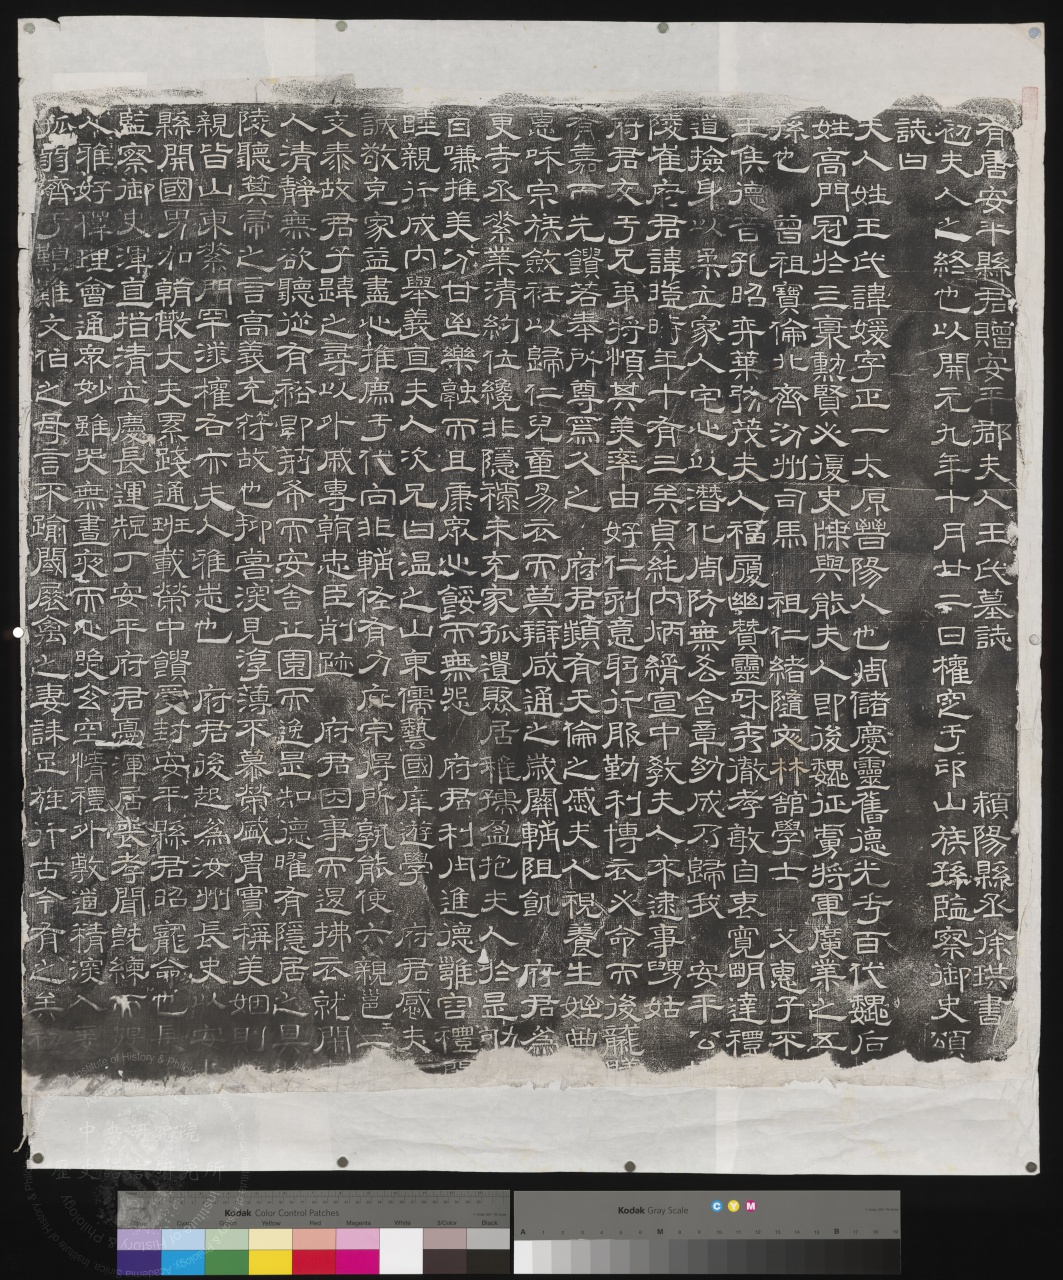 有唐安平縣君贈安平郡夫人王氏墓誌　潁陽縣丞徐珙書
初夫人之終也以開元九年十月廿二日權窆于邙山族孫監察御史頌
誌曰
夫人姓王氏諱媛字正一太原晉陽人也周儲慶靈舊德光于百代魏后
姓高門冠於三裏勳賢必復史牒與能夫人即後魏征虜將軍廣業之五
孫也　曾祖寶倫北齊汾州司馬　祖仁緒隨文林館學士　父惠子不
王侯德音孔昭弈葉弥茂夫人福履幽贊靈和秀徹孝敬自衷寬明達禮
道撿身以柔立家人宅心以潛化周防無吝含章紃成乃歸我　安平公
陵崔府君諱暟時年十有三矣貞純內炳縟宣中教夫人不逮事舅姑
府君友于兄弟將順其美率由好仁刑意躬行服勤利博衣必命而後襲
有嘉而先饋若奉所尊爲久之　府君頻有天倫之慼夫人視養生姪曲
惠咊宗族斂衽以歸仁兒童易衣而莫辯咸通之歲關輔阻飢　府君爲
吏寺丞素業清約位纔非隱未充家孤遺聚居稚孺盈抱夫人於是
自嗛推美分甘樂融而且康衆心餒而無怨　府君利用進德雖害禮
睦親行成內舉義亘夫人次兄曰溫之山東儒藝國庠遊學　府君感夫
誠敬克家益盡心推薦于代向非輔佐有力庇宗得所孰能使六親邕
交泰故君子韙之尋以外戚專朝忠臣削跡　府君因事而退拂衣就閑
人清靜無欲聽從有裕卽荊布而安舍丘園而逸是知德曜有隱居之具
陵聽箕帚之言高義充符故也抑嘗深見淳薄不慕榮盛胄實稱美姻則
親皆山東素門罕求權右亦夫人雅志也　府君後起爲汝州長史以安
縣開國男加朝散大夫累踐通班載榮中饋受封安平縣君昭寵命也
監察御史渾直指清立慶長運短丁安平府君憂渾居喪孝聞旣練而
人雅好禪理會通衆妙雖哭無晝夜而心照玄空情禮外敦道精深入
孤弱濟于艱難文伯之母言不踰閾禽之妻誄足旌行古今有之矣